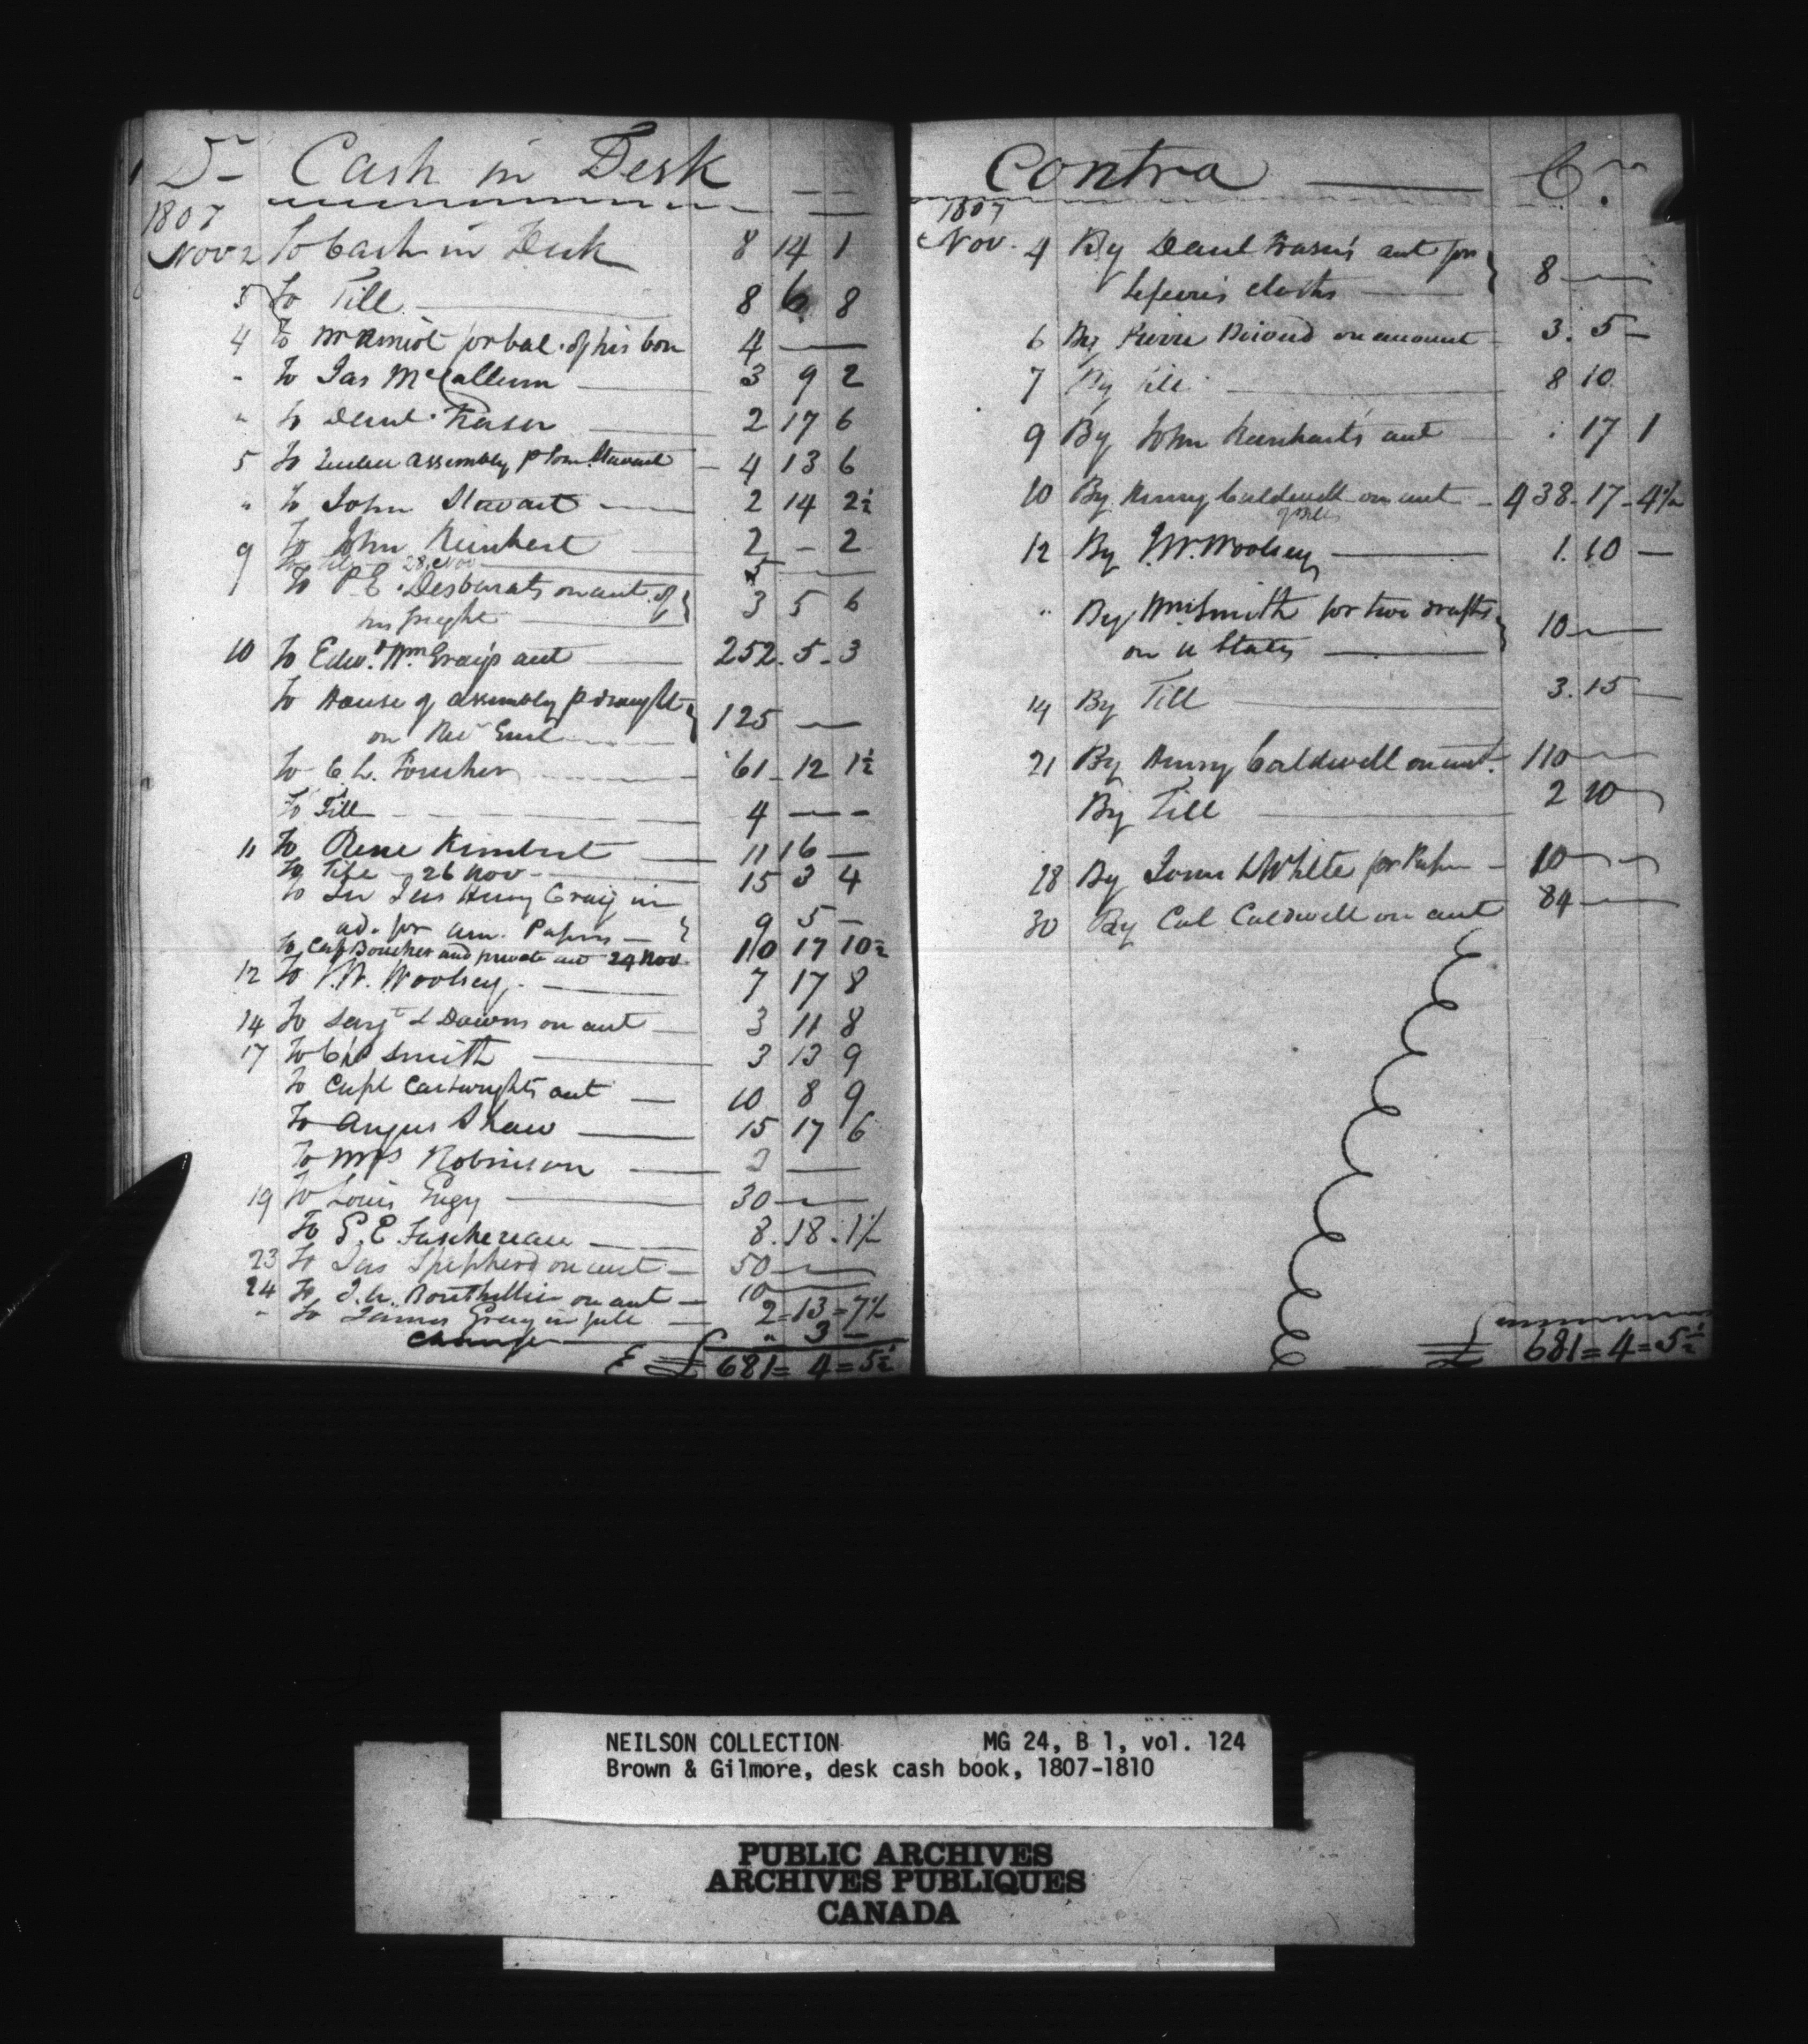 Dr Cash in Desk
1807
Nov 2 To Cash in Desk 8 14 1
3 To Till 8 6 8
4 To Mr Amiot for bal. of his bon 4 — —
" To Jas McCallum 3 9 2
" To Danl Fraser 2 17 6
5 To Quebec Assembly p John Stewart 4 13 6
" To John Stewart 2 14 2½
To John Reinhart 2 — 2
To Till 28 Nov 5 — —
9 To P.E. Desbarats on acct. of
his freight 3 5 6
10 To Edwd Wm Gray's acct 252. 5. 3
To House of Assembly p draught
on 125 —
To C. L. Foucher 61 12 1½
To Till 4 — —
11 To Rene Kimbert 11 16 —
To Till 26 Nov 15 3 4
To Sir Jas Henry Craig in
ad. for Am. Papers 9 5 —
To Capt Boucher and private acct 24 Nov 110 17 10½
12 To J.W. Woolsey 7 17 8
14 To Sergt L Downs on acct 3 11 8
17 To Chs Smith 3 13 9
To Capt Cartwrights acct 10 8 9
To Angus Shaw 15 17 6
To Mrs Robinson 2 —
19 To Louis Gugy 30 —
To G. E. Taschereau 8. 18. 1½
23 To Jas Shepherd on acct 50 —
24 To J. A. Bouthillier on acct 10 —
" To James Gray in full 2=13=7½
Change " 3 —
E £ 681= 4=5½
Contra Cr.
1807
Nov. 4 By Danl Fraser's acct for
Lefevre's cloths 8 —
6 By Pierre on account 3. 5 —
7 By Till 8 10
9 By John Reinhart's acct 17 1
10 By Henry Caldwell on acct 438. 17. 4½
of Bills
12 By J.W. Woolsey 1. 10 —
" By Wm Smith for two drafts
on U States 10 —
14 By Till 3. 15 —
21 By Henry Caldwell on acct. 110 —
By Till 2 10 —
28 By Town & White for Paper 10 —
30 By Col Caldwell on acct 84 —
£ 681=4=5½
NEILSON COLLECTION MG 24, B 1, vol. 124
Brown & Gilmore, desk cash book, 1807-1810
PUBLIC ARCHIVES
ARCHIVES PUBLIQUES
CANADA